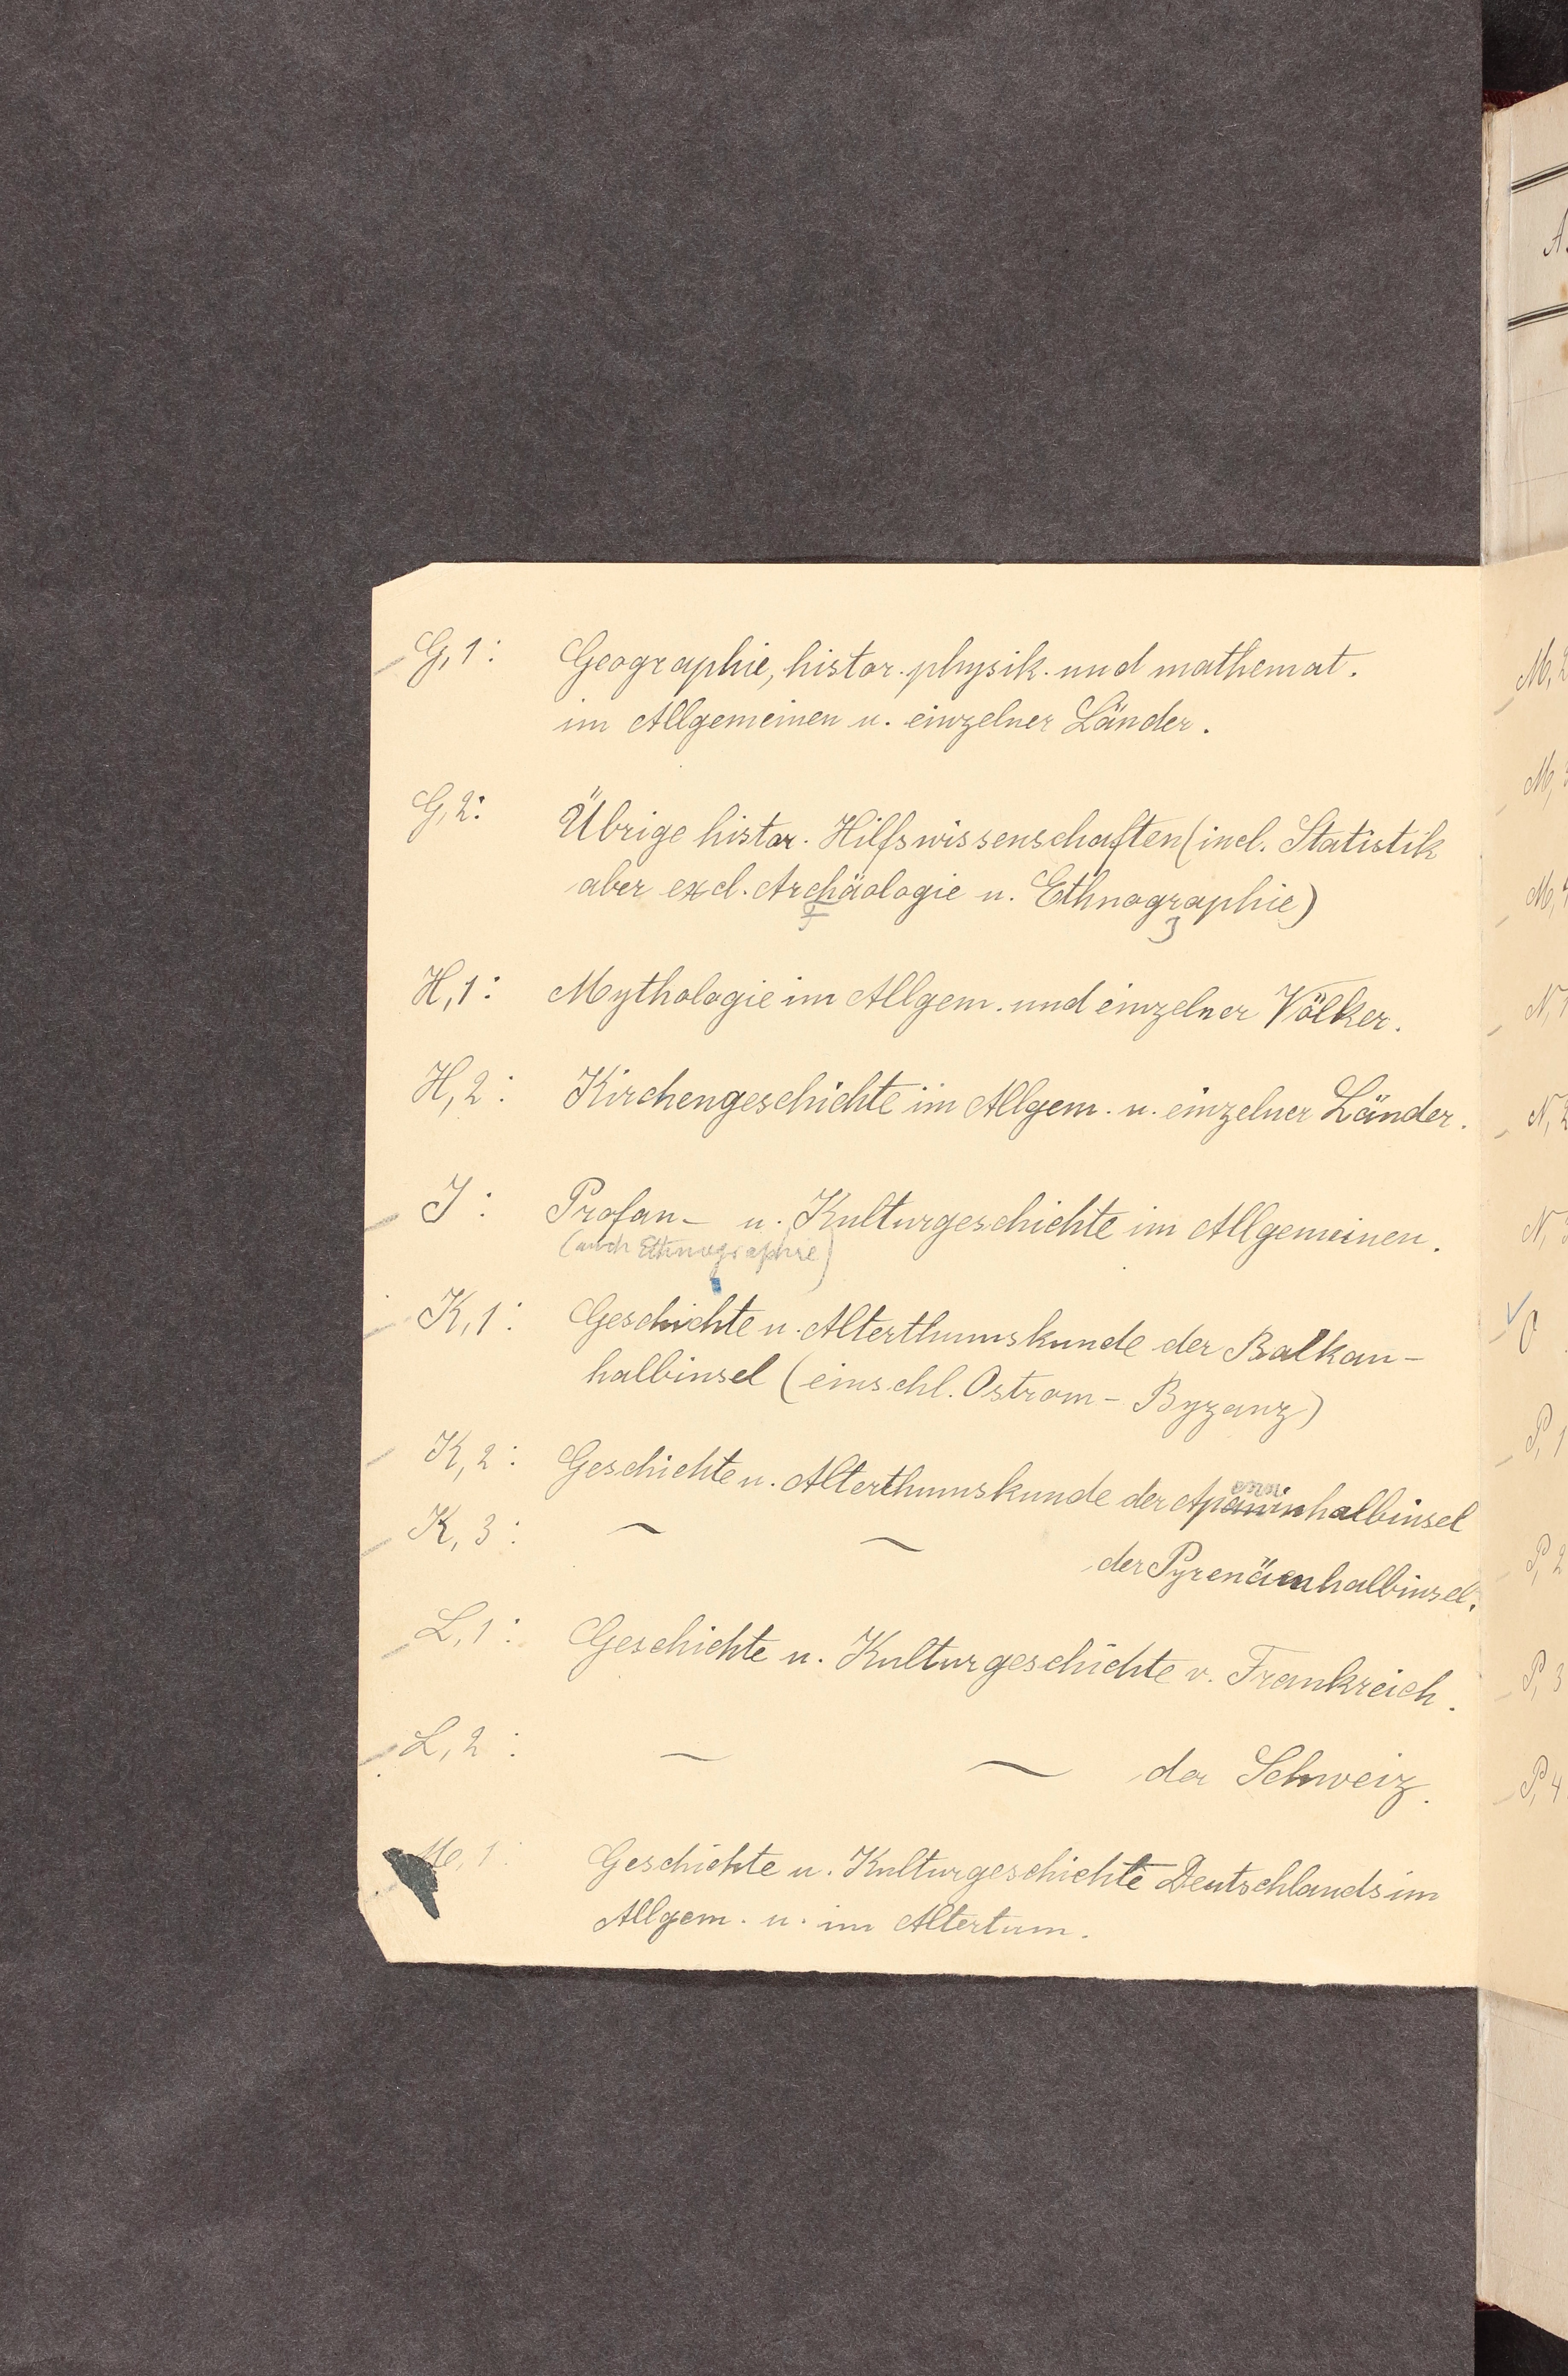 G, 1: Geographie, histor. physik. und mathemat.
im Allgemeinen u. einzelner Länder.
G, 2: Übrige histor. Hilfswissenschaften (incl. Statistik
aber excl. Archäologie u. Ethnographie)
H, 1: Mythologie im Allgem. und einzelner Völker.
H, 2: Kirchengeschichte im Allgem. u. einzelner Länder.
J: Profan- u. Kulturgeschichte im Allgemeinen.
(auch Ethnographie)
K, 1: Geschichte u. Alterthumskunde der Balkan-
halbinsel (einschl. Ostrom - Byzanz)
enni
K, 2: Geschichte u. Alterthumskunde der Apaninhalbinsel
K, 3: ~ ~ der Pyrenäenhalbinsel.
L, 1: Geschichte u. Kulturgeschichte v. Frankreich.
L, 2: ~ ~ der Schweiz.
M, 1: Geschichte u. Kulturgeschichte Deutschlands im
Allgem. u. im Altertum.
M, 2
M, 3
M, 4
N, 1
N, 2
N, 3
O
P, 1
P, 2
P, 3
P, 4